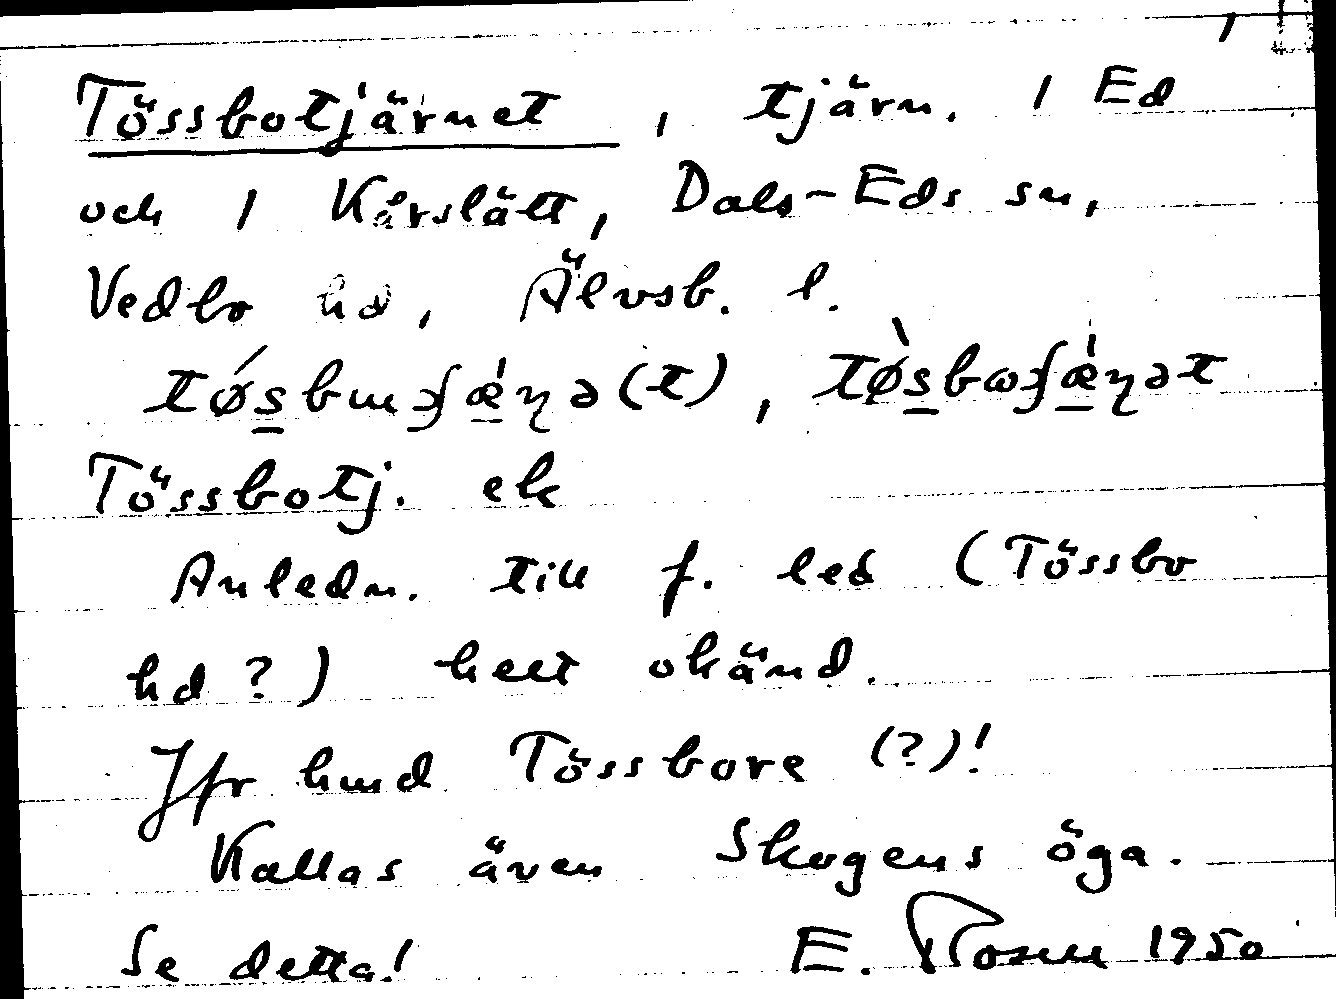 Tössbotjärnet, tjärn. I Ed
och I Kårslätt, Dals-Eds sn,
Vedbo hd, Älvsb. l.
Tössbotj. ek
Anledn. till f. led (Tössbo
hd?) helt okänd.
Jfr hmd Tössbore (?)!
Kallas även Skogens öga.
Se detta! E. Rosell 1950